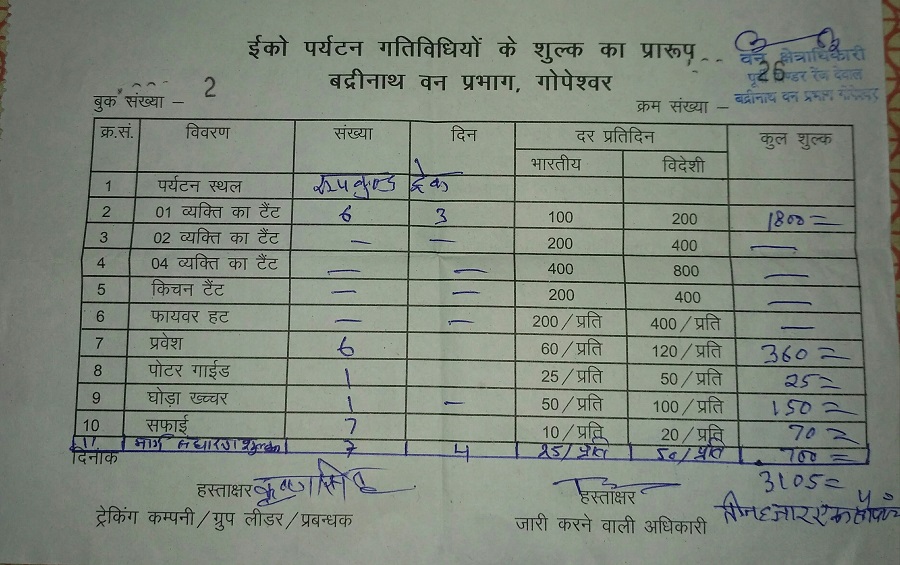 ईको पर्यटन गतिविधियों के शुल्क का प्रारूप
बद्रीनाथ वन प्रभाग, गोपेश्वर
वन क्षेत्राधिकारी
रेंज देवाल
बद्रीनाथ वन प्रभाग गोपेश्वर
बुक संख्या – 2
क्रम संख्या – 26
क्र.सं. विवरण संख्या दिन दर प्रतिदिन कुल शुल्क
भारतीय विदेशी
1 पर्यटन स्थल रूपकुण्ड ट्रेक
2 01 व्यक्ति का टैंट 6 3 100 200 1800=
3 02 व्यक्ति का टैंट — — 200 400 —
4 04 व्यक्ति का टैंट — — 400 800 —
5 किचन टैंट — — 200 400 —
6 फायवर हट — — 200/प्रति 400/प्रति —
7 प्रवेश 6 60/प्रति 120/प्रति 360=
8 पोटर गाईड 1 25/प्रति 50/प्रति 25=
9 घोड़ा खच्चर 1 – 50/प्रति 100/प्रति 150=
10 सफाई 7 10/प्रति 20/प्रति 70=
11 मार्ग शुल्क 7 4 25/प्रति 50/प्रति 700=
दिनांक
3105=
हस्ताक्षर हस्ताक्षर
ट्रेकिंग कम्पनी/ग्रुप लीडर/प्रबन्धक जारी करने वाली अधिकारी